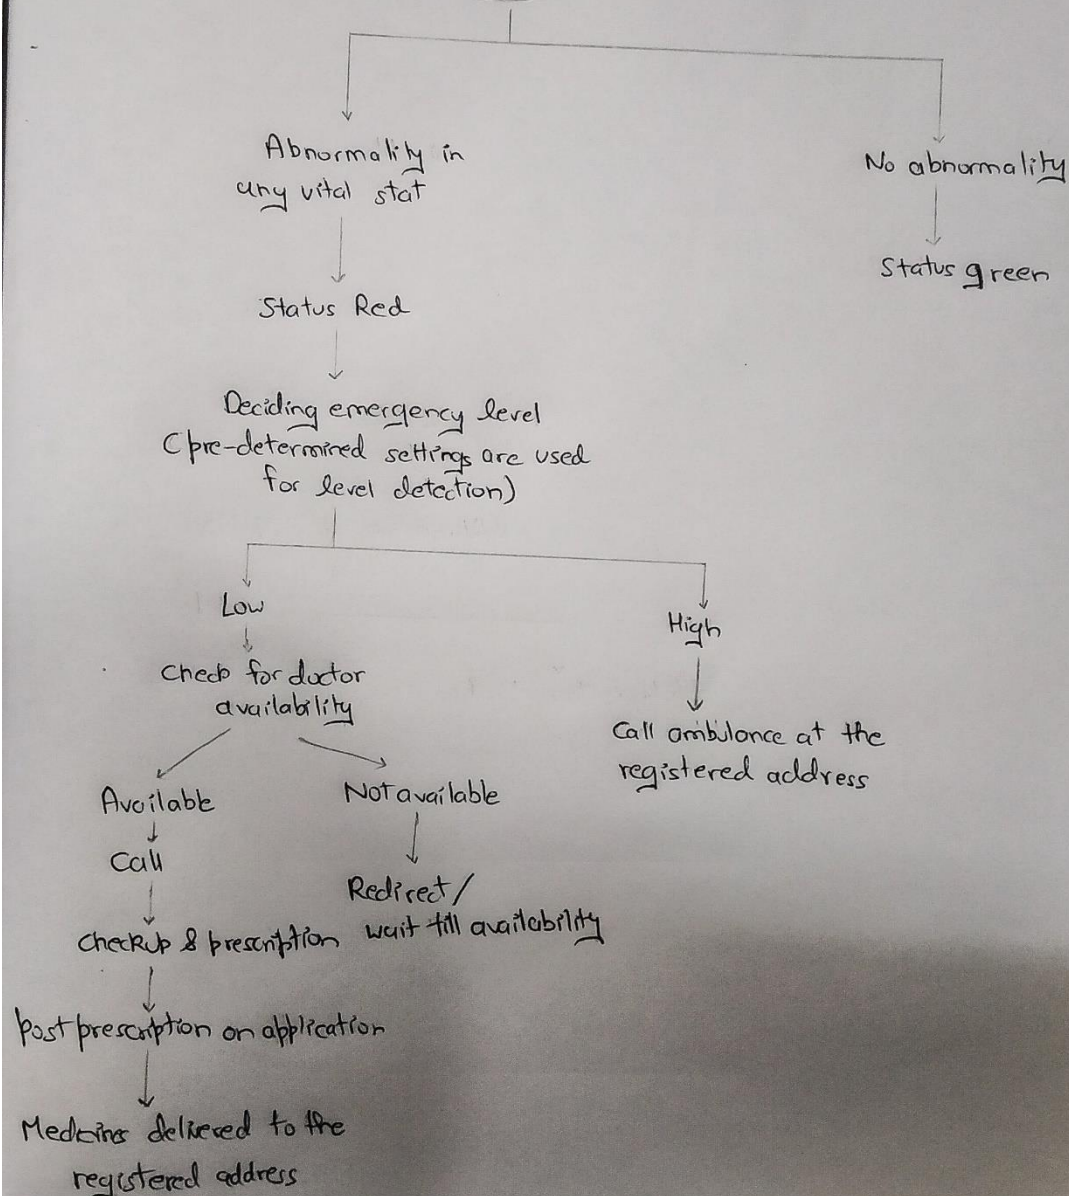 Abnormality in
any vital stat
No abnormality
Status green
Status Red
Deciding emergency level
(pre-determined settings are used
for level detection)
Low
High
Check for doctor
availability
Call ambulance at the
registered address
Available
Not available
Call
Redirect/
wait till availability
Checkup & prescription
Post prescription on application
Medicines delivered to the
registered address